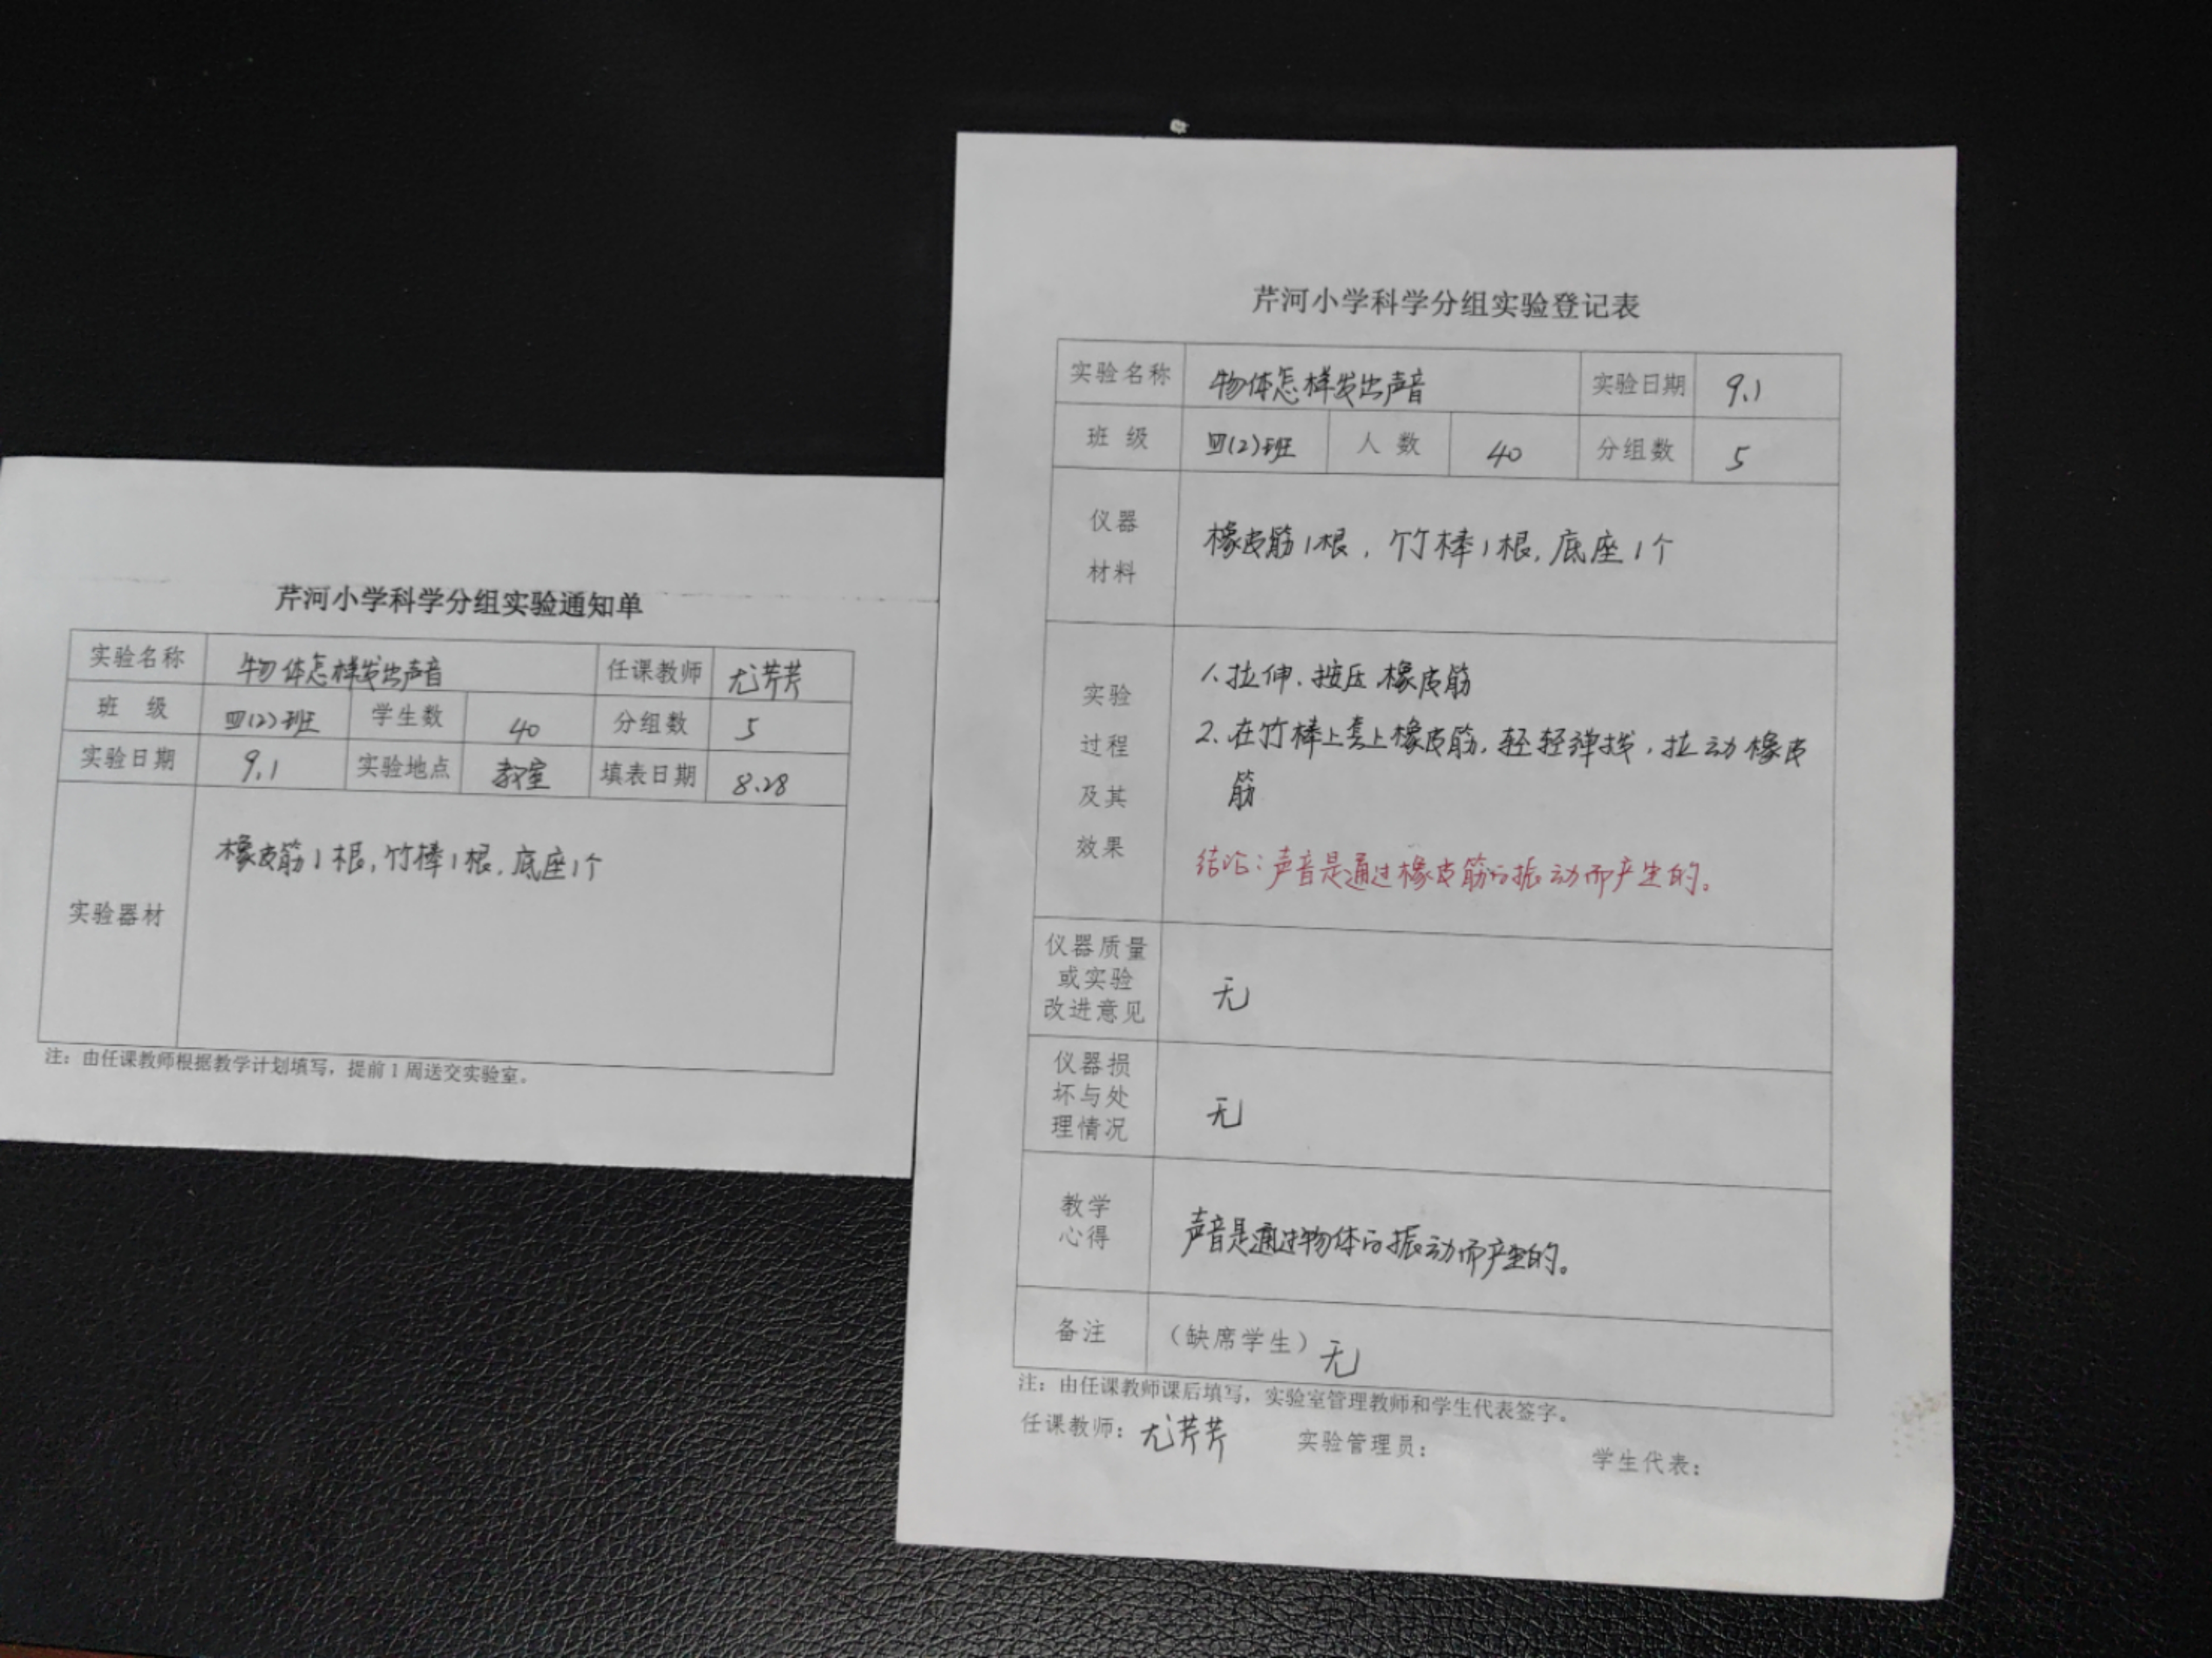 芹河小学科学分组实验通知单
实验名称 物体怎样发出声音 任课教师 尤芹芹
班 级 四(2)班 学生数 40 分组数 5
实验日期 9.1 实验地点 教室 填表日期 8.28
实验器材 橡皮筋1根,竹棒1根,底座1个
注：由任课教师根据教学计划填写，提前1周送交实验室。
芹河小学科学分组实验登记表
实验名称 物体怎样发出声音 实验日期 9.1
班 级 四(2)班 人 数 40 分组数 5
仪器
材料
橡皮筋1根,竹棒1根,底座1个
实验
过程
及其
效果
1.拉伸、按压橡皮筋
2.在竹棒上套上橡皮筋,轻轻弹拨,拉动橡皮
筋
结论:声音是通过橡皮筋的振动而产生的。
仪器质量
或实验
改进意见
无
仪器损
坏与处
理情况
无
教学
心得
声音是通过物体的振动而产生的。
备注 （缺席学生）无
注：由任课教师课后填写，实验室管理教师和学生代表签字。
任课教师：尤芹芹 实验管理员： 学生代表：